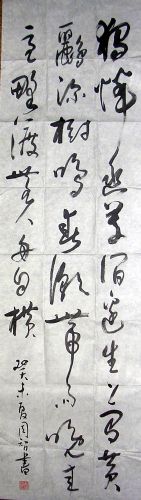 獨憐幽草澗邊生上有黄
鸝深樹鳴春潮帶雨晚來
急野渡無人舟自橫
癸未夏周智書